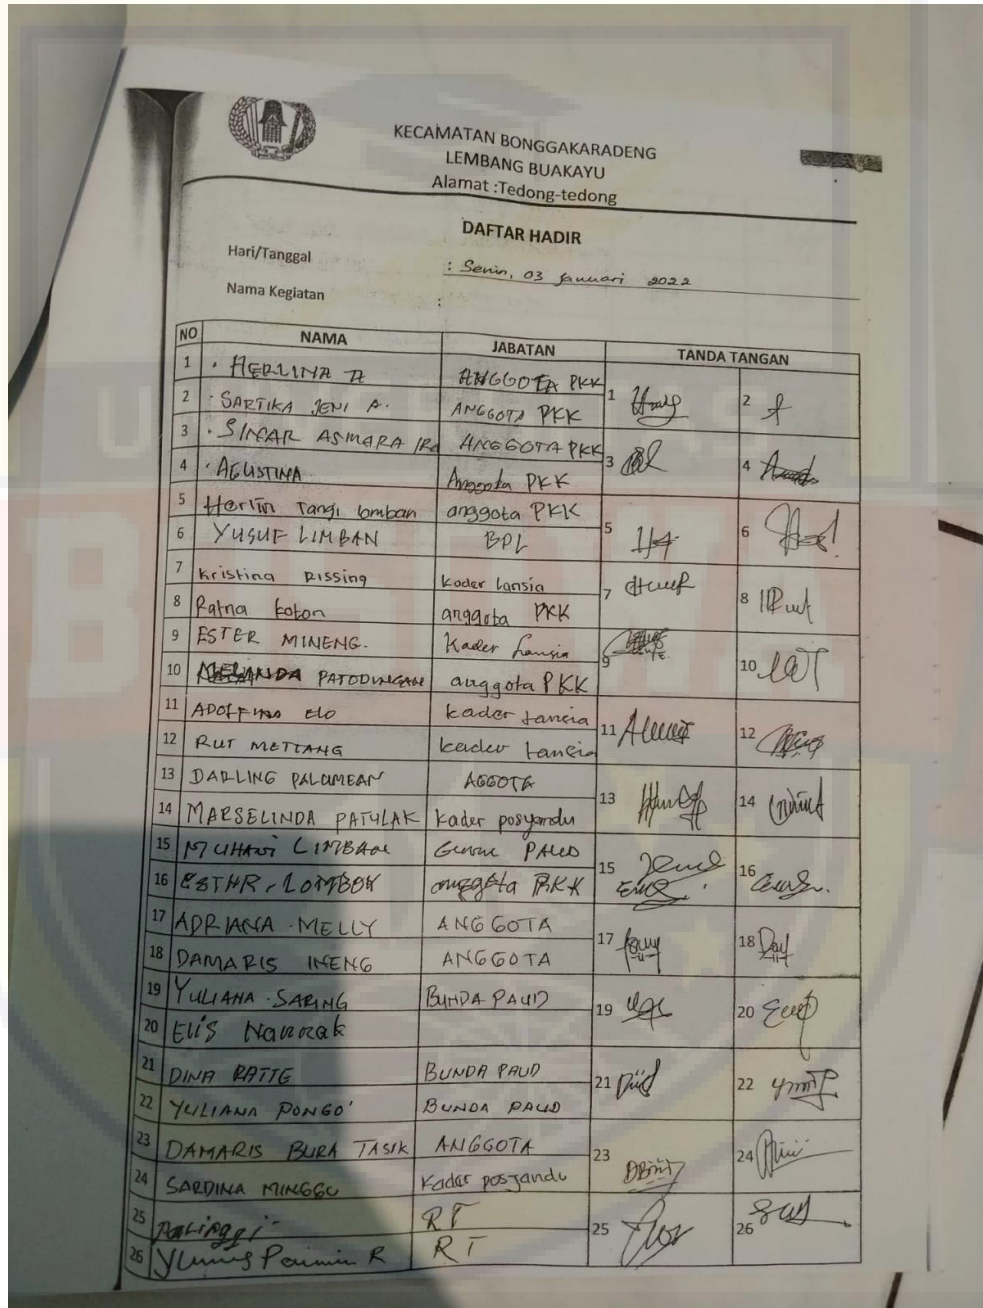 KECAMATAN BONGGAKARADENG
LEMBANG BUAKAYU
Alamat :Tedong-tedong
DAFTAR HADIR
Hari/Tanggal : Senin, 03 Januari 2022
Nama Kegiatan :
NO NAMA JABATAN TANDA TANGAN
1 HERLINA ANGGOTA PKK 1 2
2 SARTIKA JENI A. ANGGOTA PKK
3 SINAR ASMARA ANGGOTA PKK 3 4
4 AGUSTINA Anggota PKK
5 Tangi Limban anggota PKK 5 6
6 YUSUF LIMBAN BPL
7 Kristina Rissing kader lansia 7 8
8 Ratna anggota PKK
9 ESTER MINENG. Kader Lansia 9 10
10 anggota PKK
11 kader lansia 11 12
12 RUT METTANG kader lansia
13 DARLING PALUMEAN AGGOTA 13 14
14 MARSELINDA PATULAK kader posyandu
15 LIMBAN PAUD 15 16
16 LOMBOK anggota PKK
17 ADRIANA MELLY ANGGOTA 17 18
18 DAMARIS INENG ANGGOTA
19 YULIANA SARING BUNDA PAUD 19 20
20 Elis
21 DINA RATTE BUNDA PAUD 21 22
22 YULIANA PONGO' BUNDA PAUD
23 DAMARIS BURA TASIK ANGGOTA 23 24
24 SARDINA MINGGU Kader
25 RT 25 26
26 RT